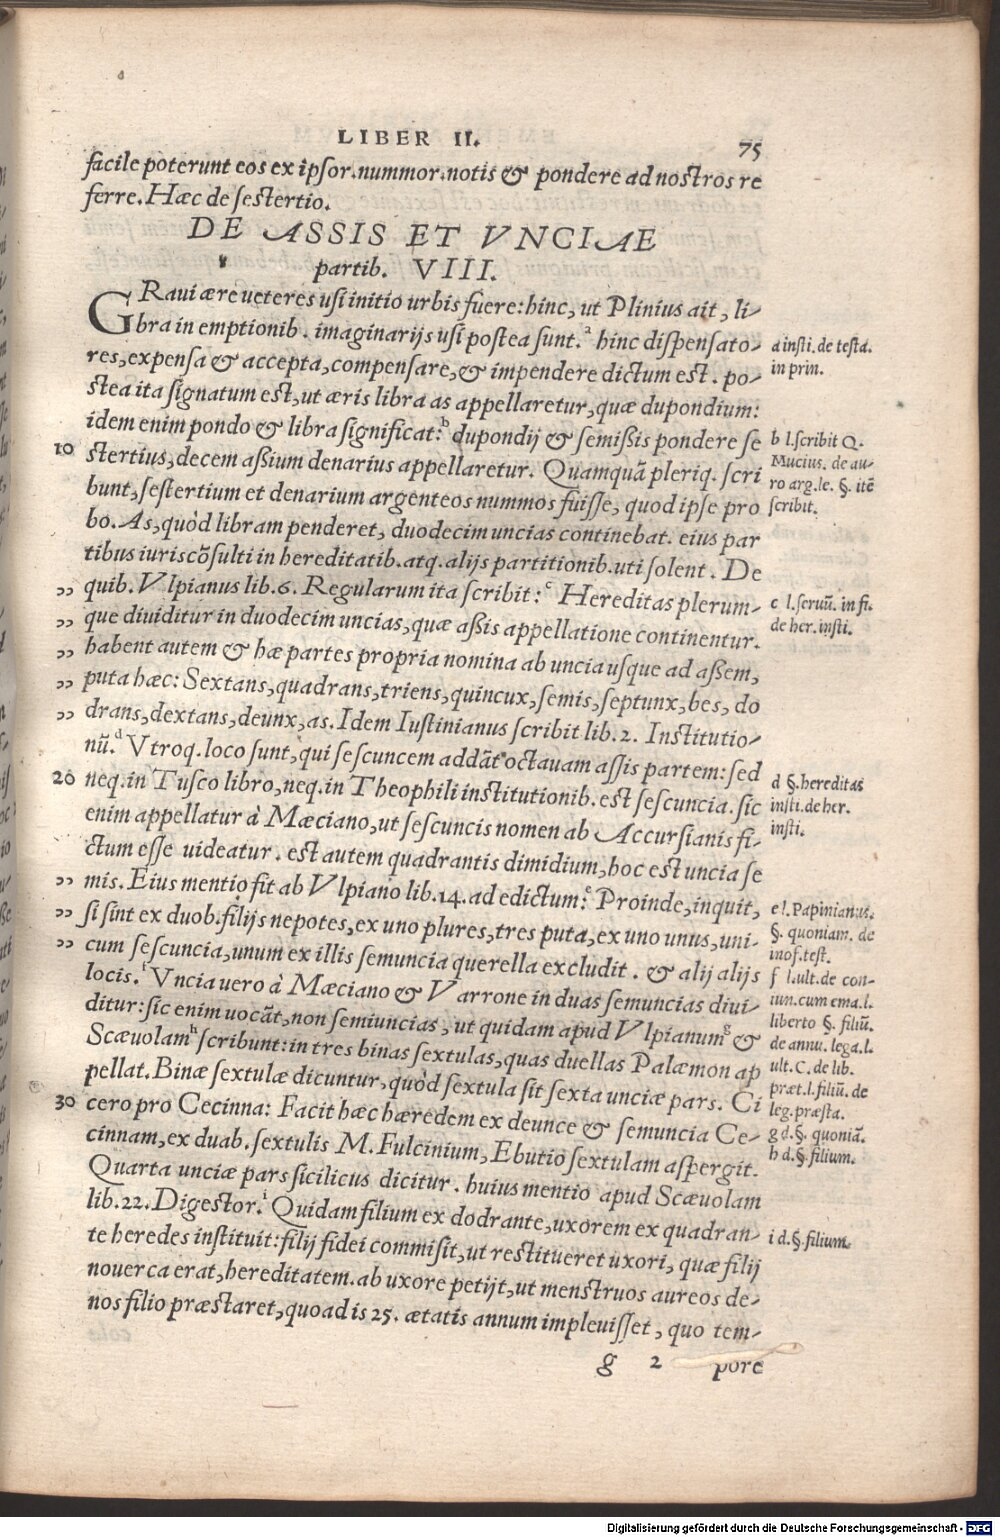 LIBER II. 75
facile poterunt eos ex ipsor. nummor. notis & pondere ad nostros re
ferre. Hæc de sestertio.
DE ASSIS ET VNCIAE
partib. VIII.
GRaui ære ueteres usi initio urbis fuere: hinc, ut Plinius ait, li-
bra in emptionib. imaginarijs usi postea sunt.ᵃ hinc dispensato-
res, expensa & accepta, compensare, & impendere dictum est. po-
stea ita signatum est, ut æris libra as appellaretur, quæ dupondium:
idem enim pondo & libra significat:ᵇ dupondij & semißis pondere se
10 stertius, decem aßium denarius appellaretur. Quamquã pleriq. scri
bunt, sestertium et denarium argenteos nummos fuisse, quod ipse pro
bo. As, quòd libram penderet, duodecim uncias continebat. eius par
tibus iuriscõsulti in hereditatib. atq. alijs partitionib. uti solent. De
,, quib. Vlpianus lib. 6. Regularum ita scribit:ᶜ Hereditas plerum-
,, que diuiditur in duodecim uncias, quæ aßis appellatione continentur.
,, habent autem & hæ partes propria nomina ab uncia usque ad aßem,
,, puta hæc: Sextans, quadrans, triens, quincux, semis, septunx, bes, do
,, drans, dextans, deunx, as. Idem Iustinianus scribit lib. 2. Institutio-
nũ.ᵈ Vtroq. loco sunt, qui sescuncem addãt octauam assis partem: sed
20 neq. in Tusco libro, neq. in Theophili institutionib. est sescuncia. sic
enim appellatur à Mæciano, ut sescuncis nomen ab Accursianis fi-
ctum esse uideatur. est autem quadrantis dimidium, hoc est uncia se
,, mis. Eius mentio fit ab Vlpiano lib. 14. ad edictum:ᵉ Proinde, inquit,
,, si sint ex duob. filijs nepotes, ex uno plures, tres puta, ex uno unus, uni-
,, cum sescuncia, unum ex illis semuncia querella excludit. & alij alijs
locis.ᶠ Vncia uero à Mæciano & Varrone in duas semuncias diui-
ditur: sic enim uocãt, non semiuncias, ut quidam apud Vlpianumᵍ &
Scæuolamʰ scribunt: in tres binas sextulas, quas duellas Palæmon ap
pellat. Binæ sextulæ dicuntur, quòd sextula sit sexta unciæ pars. Ci
30 cero pro Cecinna: Facit hæc hæredem ex deunce & semuncia Ce-
cinnam, ex duab. sextulis M. Fulcinium, Ebutio sextulam aspergit.
Quarta unciæ pars sicilicus dicitur. huius mentio apud Scæuolam
lib. 22. Digestor.ⁱ Quidam filium ex dodrante, uxorem ex quadran-
te heredes instituit: filij fidei commisit, ut restitueret uxori, quæ filij
nouerca erat, hereditatem. ab uxore petijt, ut menstruos aureos de-
nos filio præstaret, quoad is 25. ætatis annum impleuisset, quo tem-
g 2 pore
a insti. de testa.
in prin.
b l. scribit Q.
Mucius. de au-
ro arg. le. §. itē
scribit.
c l. seruũ. in fi.
de her. insti.
d §. hereditas
insti. de her.
insti.
e l. Papinianus.
§. quoniam. de
inof. test.
f l. ult. de con-
iun. cum ema. l.
liberto §. filiũ.
de annu. lega. l.
ult. C. de lib.
præt. l. filiũ. de
leg. præsta.
g d. §. quoniã.
h d. §. filium.
i d. §. filium.
Digitalisierung gefördert durch die Deutsche Forschungsgemeinschaft - DFG